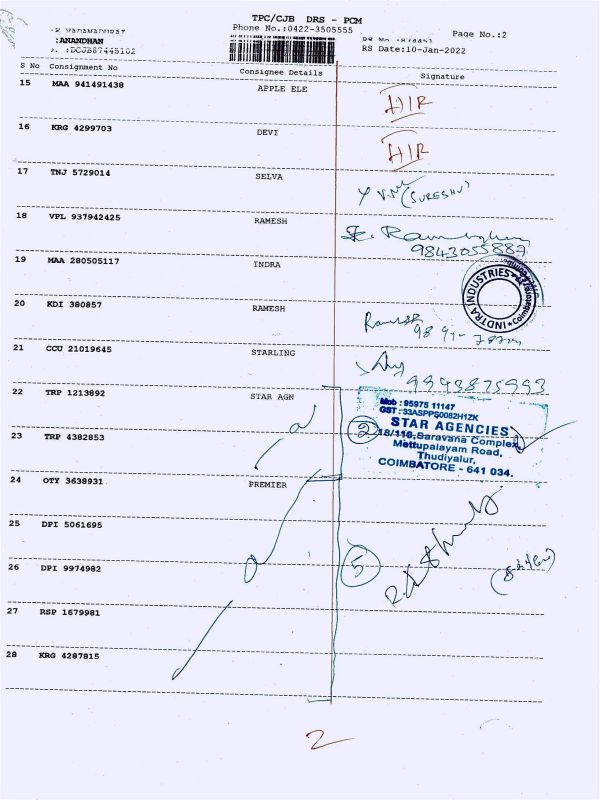 TPC/CJB DRS - PCM
Phone No.:0422-3505555
Page No.:2
:ANANDHAN
:DCJB87445102
RS Date:10-Jan-2022
S No Consignment No Consignee Details Signature
15 MAA 941491438 APPLE ELE HIR
16 KRG 4299703 DEVI HIR
17 TNJ 5729014 SELVA (SURESHU)
18 VPL 937942425 RAMESH
9843055887
19 MAA 280505117 INDRA
INDTRA INDUSTRIES * Coimbatore
20 KDI 380857 RAMESH
21 CCU 21019645 STARLING
9843875993
22 TRP 1213892 STAR AGN
Mob : 95975 11147
GST : 33ASPPS0082H1ZK
STAR AGENCIES
18/110, Saravana Complex,
Mettupalayam Road,
Thudiyalur,
COIMBATORE - 641 034.
2
23 TRP 4382853
24 OTY 3638931 PREMIER
25 DPI 5061695
26 DPI 9974982
5
27 RSP 1679981
28 KRG 4287815
2